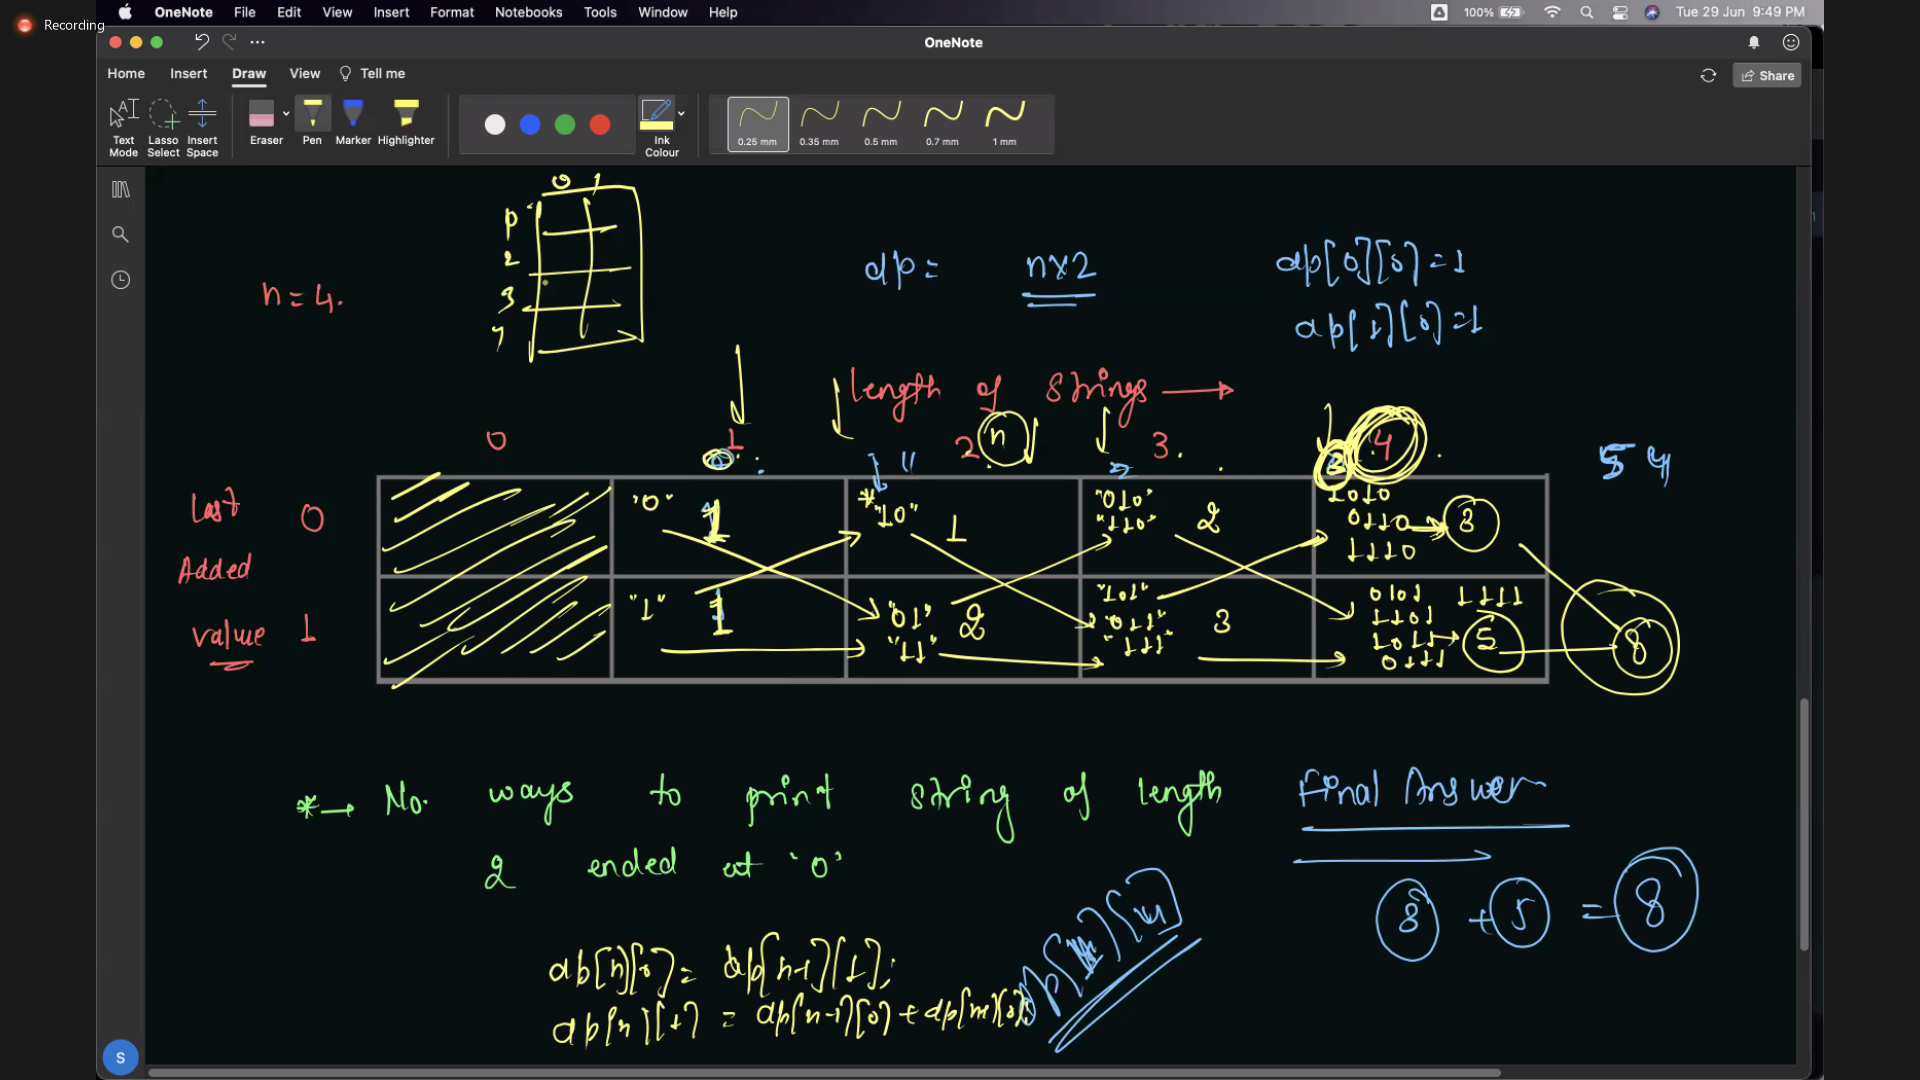 Recording
OneNote File Edit View Insert Format Notebooks Tools Window Help
100% Tue 29 Jun 9:49 PM
OneNote
Home Insert Draw View Tell me
Share
Text Mode
Lasso Select
Insert Space
Eraser
Pen
Marker
Highlighter
Ink Colour
0.25 mm 0.35 mm 0.5 mm 0.7 mm 1 mm
0 1
2
3
n = 4.
dp = n×2
dp[0][0] = 1
dp[1][0] = 1
length of strings →
0 1 2 n 3. 4
5 4
Last 0
Added
value 1
"0" 1
"10" 1
"010"
"110" 2
1010
0110 → 3
1110
"1" 1
"01"
"11" 2
"101"
"011"
"111" 3
0101 1111
1101
1011 → 5
0111
8
* → No. ways to print string of length
2 ended at '0'
Final Answer
3 + 5 = 8
dp[n][0] = dp[n-1][1];
dp[n][1] = dp[n-1][0] +
S